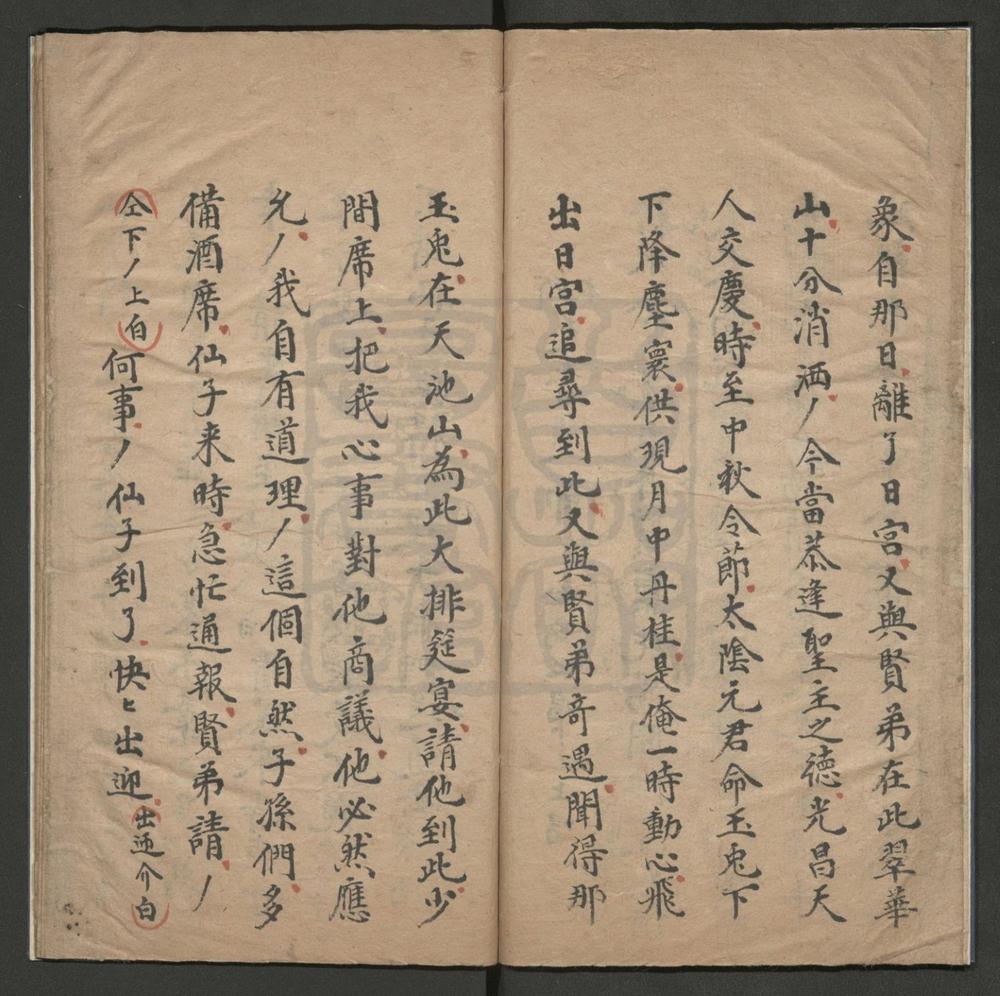 象自那日離了日宫又與賢弟在此翠華
山十分消洒ノ今當恭逢聖主之德光昌天
人交慶時至中秋令節太隂元君命玉兎下
下降塵寰供現月中丹桂是俺一時動心飛
出日宫追尋到此又與賢弟竒遇聞得那
玉兎在天池山為此大排筵宴請他到此少
間席上把我心事對他商議他必然應
允ノ我自有道理ノ這個自然子孫們多
備酒席仙子来時急忙通報賢弟請ノ
仝下ノ上白何事ノ仙子到了快〻出迎出迎介白